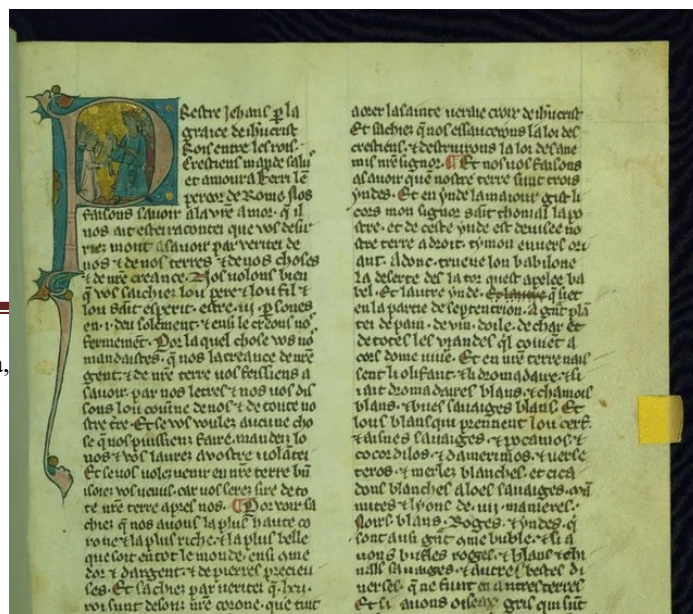 Prestre Jehans p la
grace de ihucrist
Rois entre les rois.
Crestiens mande salu
et amour a Ferri lē
pereor de Rome. Nos
faisons savoir a la vrē amor. q̄ il
nos ait estei racontei que vos desir
riez mont a savoir par veritei de
nos ⁊ de nos terres ⁊ de nos choses
⁊ de nrē creance. Nos volons bien
q̄ vos saichiez lou pere ⁊ lou fil ⁊
lou saint esperit. estre .iii. psones
en .i. deu solement. ⁊ ensi le creons nos
fermement. Por la quel chose vos nos
mandastes. q̄ nos la creance de nrē
gent. ⁊ de nrē terre vos feissiens a
savoir. par nos letres ⁊ nos vos dis
sons lou couine de nos ⁊ de toute no
stre ērre. Et se vos volez aucune cho
se q̄ nos puissiens faire. mandez lo
nos ⁊ vos laurez a vostre volātei
Et se vos volez venir en nrē terre bn̄
soiez vos venus. car vos serez sire de to
te nrē terre apres nos. Por voir sa
chiez q̄ nos avons la plus haute co
rone ⁊ la plus riche. ⁊ la plus belle
que soit en tot le monde. ensi qme
dor ⁊ dargent. ⁊ de pierres precieu
ses. Et sachiez par veritei q̄ .lxii.
roi sunt desoz nrē corone. que tuit
aorer la sainte veraie croiz de ihucrist
Et sachiez q̄ nos essaucerons la loi des
crestiens. ⁊ destruirons la loi des ane
mis nrē signor. Et nos vos faisons
a savoir que nostre terre sunt trois
yndes. Et en ynde la maiour gist li
cors mon signor saīt thomas lapo
stre. et de ceste ynde est devisee no
stre terre a droit. tymon envers ori
ant. adonc. trueve lon babilone
la deserte des la tor quest apelee ba
bel. Et lautre ynde. Et lautre q̄ siet
en la partie de septentrion. A gn̄t plā
tei de pain. de vin. doile. de char et
de totes les viandes q̄l coviēt a
cors dome vivre. Et en nrē terre nais
sent li olifant. ⁊ li dromadaire. ⁊ si
i ait dromadaires blans. ⁊ chamois
blans. ⁊ bues savaiges blans. Et
lous blans qui prennent lou cerf.
⁊ aisnes savaiges. ⁊ ypocamos. ⁊
cocordilos. ⁊ damerimos. ⁊ verse
teros. ⁊ merlez blanches. et cica
dons blanches aloes savaiges. ma
mites ⁊ lyons. de .iiii. manieres.
Noirs. blans. Roges. ⁊ yndes. q̄
sont ausi gn̄t qme buble. ⁊ si a
vons bugles roges. ⁊ blans ⁊ chi
vals savaiges. ⁊ autres bestes di
verses. q̄ ne sunt en autres terres
Et si avons oiseax gris qui sūt